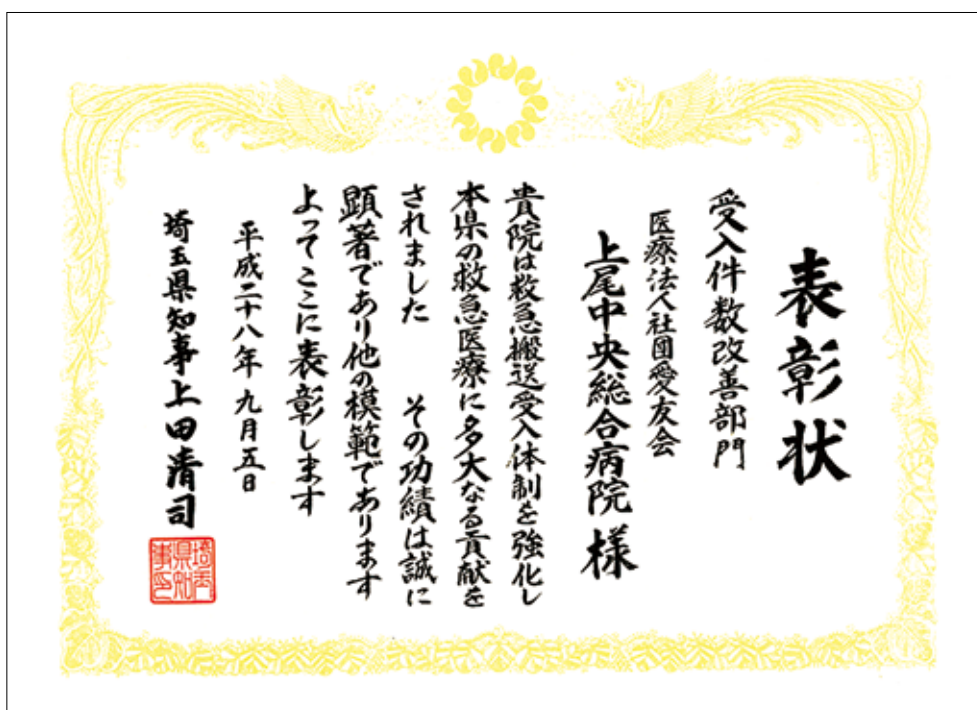 表彰状
受入件数改善部門
医療法人社団愛友会
上尾中央総合病院 様
貴院は救急搬送受入体制を強化し
本県の救急医療に多大なる貢献を
されました　その功績は誠に
顕著であり他の模範であります
よってここに表彰します
平成二十八年九月五日
埼玉県知事上田清司
埼玉
県知
事印